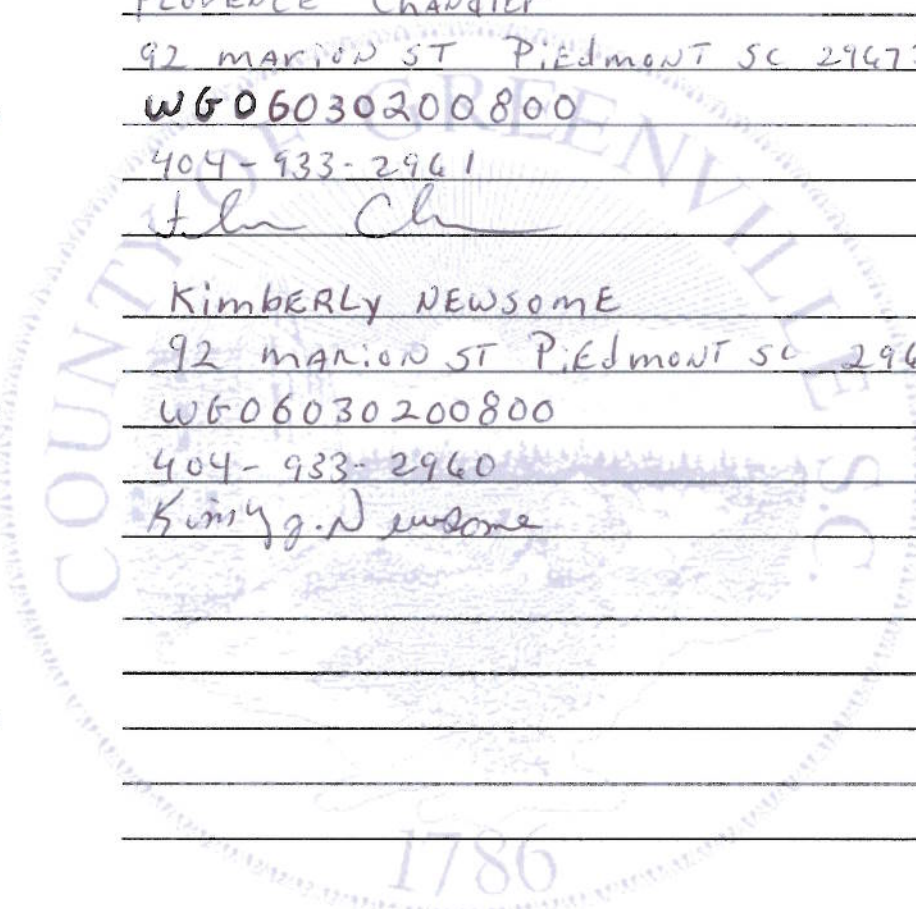 FLORENCE Chandler
92 marion ST Piedmont SC 29673
WG06030200800
404-933-2961
Kimberly NEWSOME
92 marion ST Piedmont SC 296
WG06030200800
404-933-2960
Kimly J. Newsome
COUNTY OF GREENVILLE SC.
1786